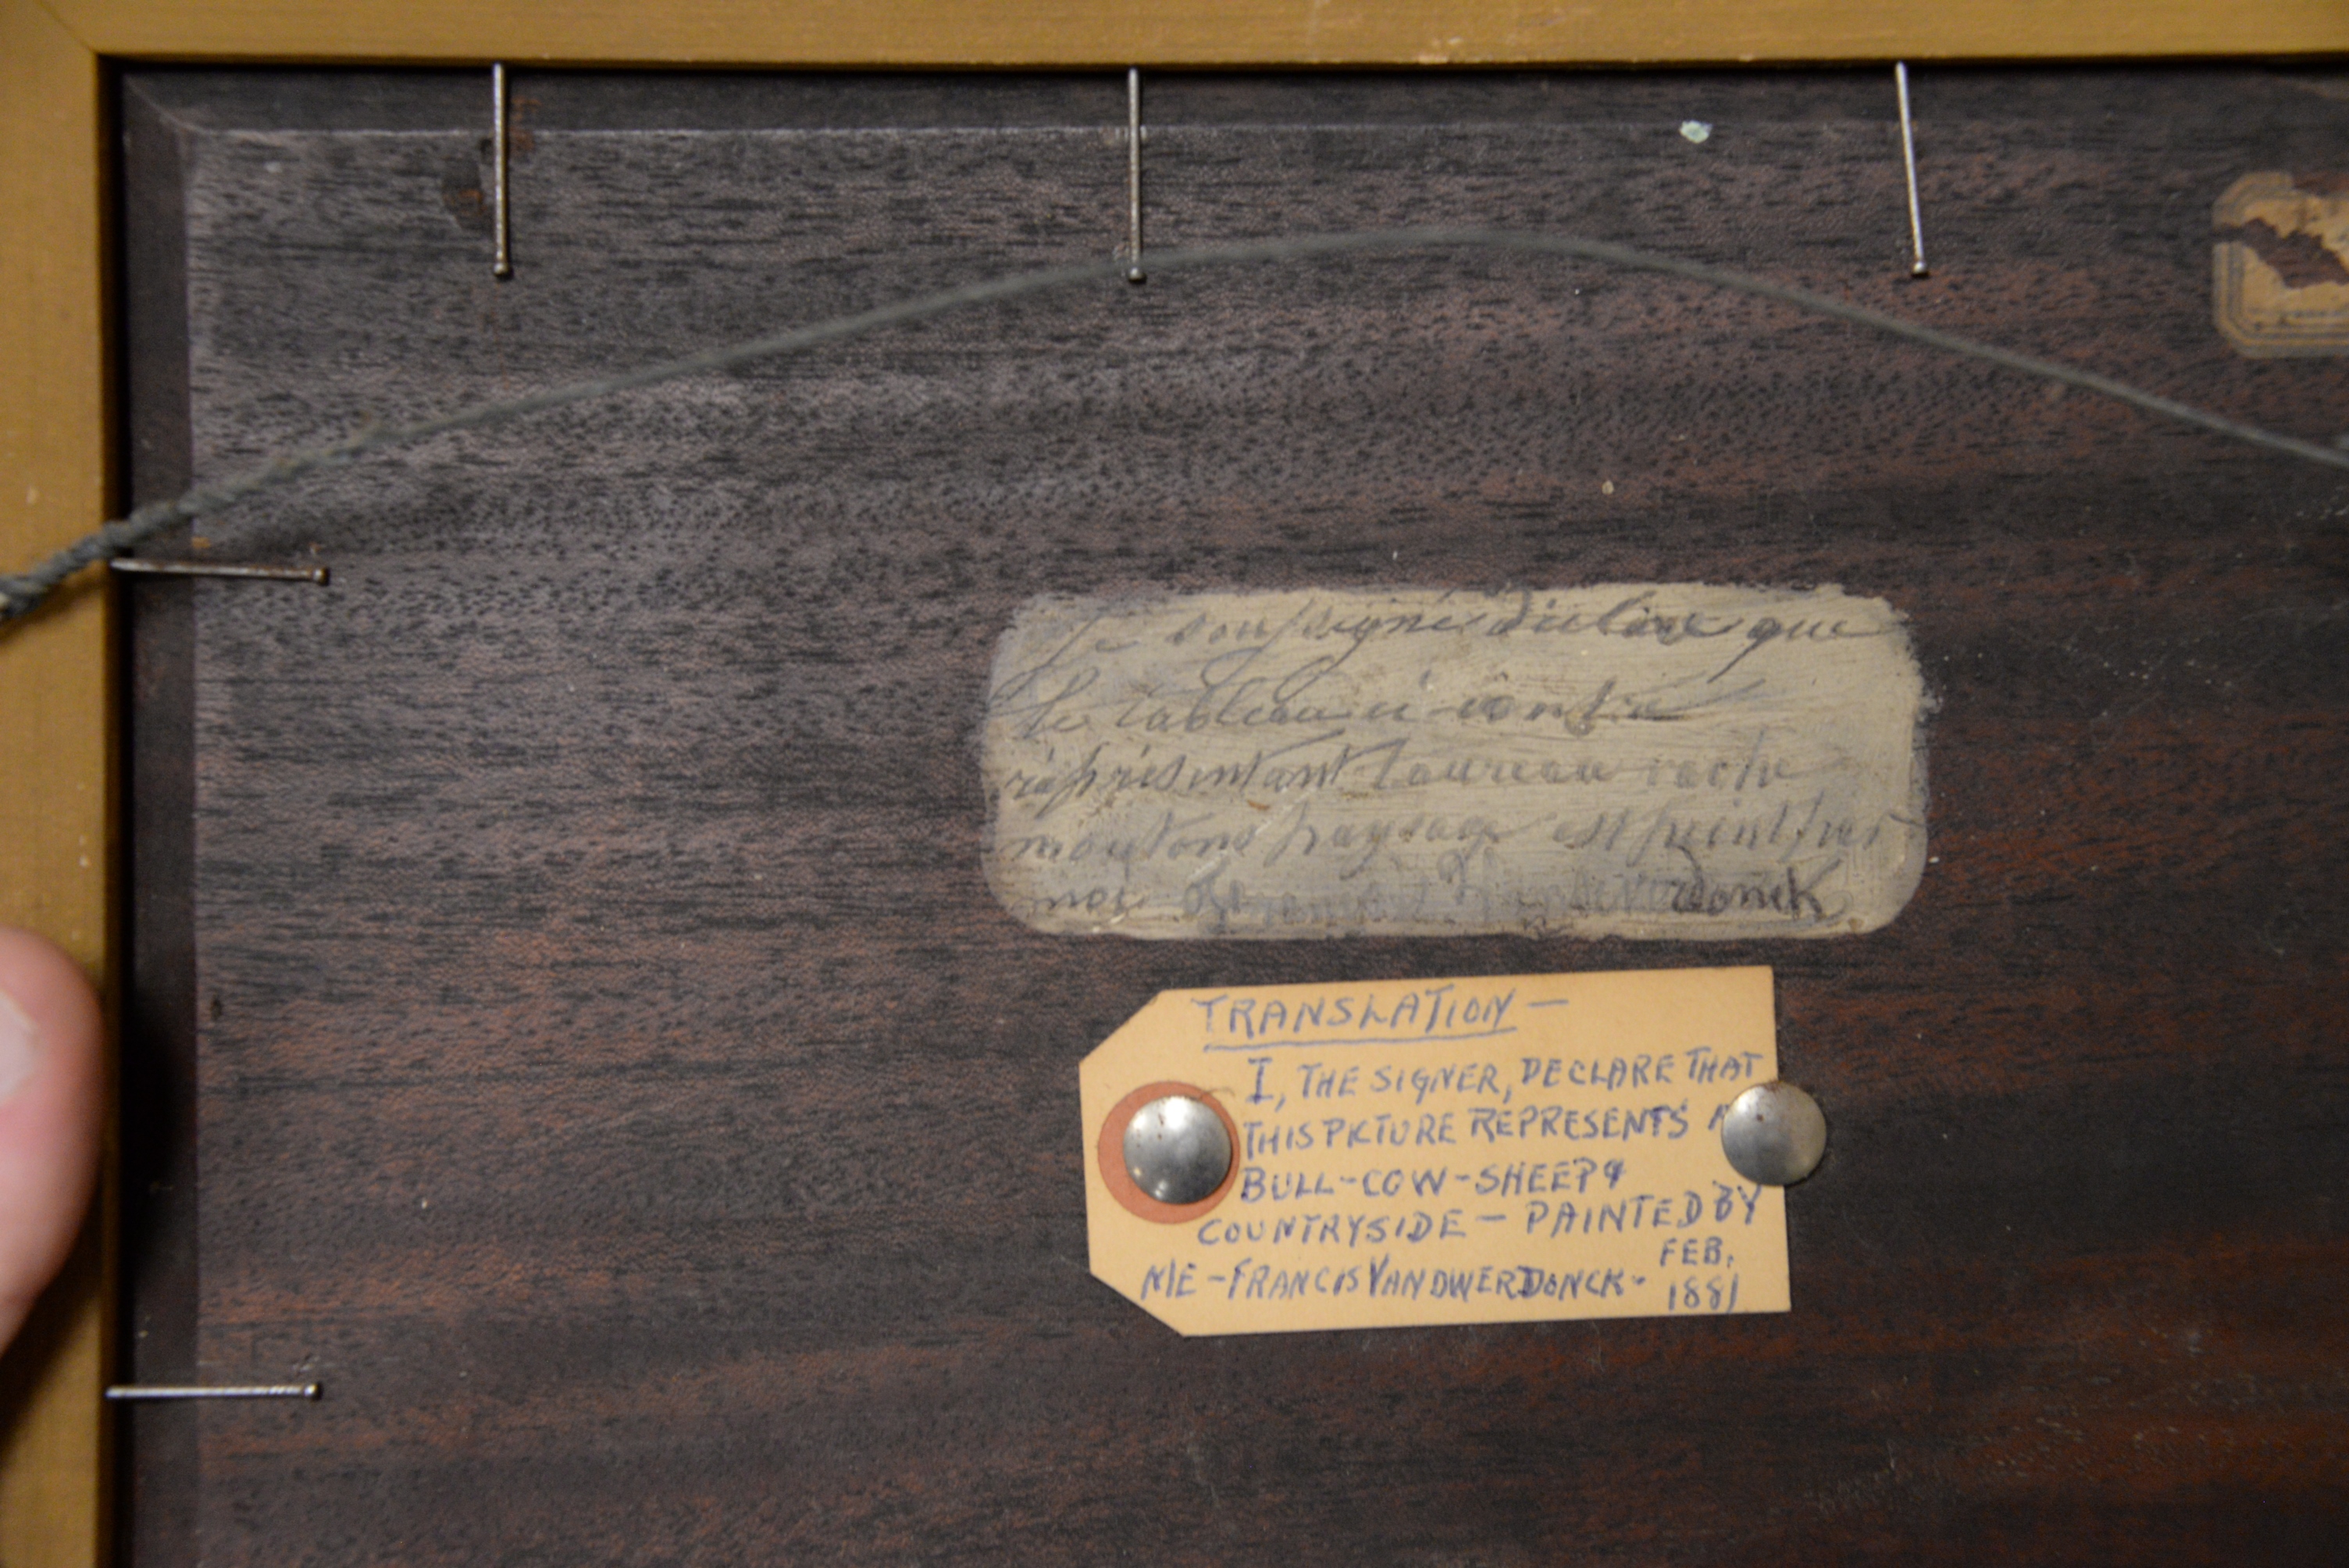 Je soussigné déclare que
le tableau ci-contre
représentant taureau vache
moutons paysage est peint par
moi
TRANSLATION —
I, THE SIGNER, DECLARE THAT
THIS PICTURE REPRESENTS A
BULL-COW-SHEEP &
COUNTRYSIDE — PAINTED BY
ME - FRANCIS VANDWERDONCK - FEB.
1881